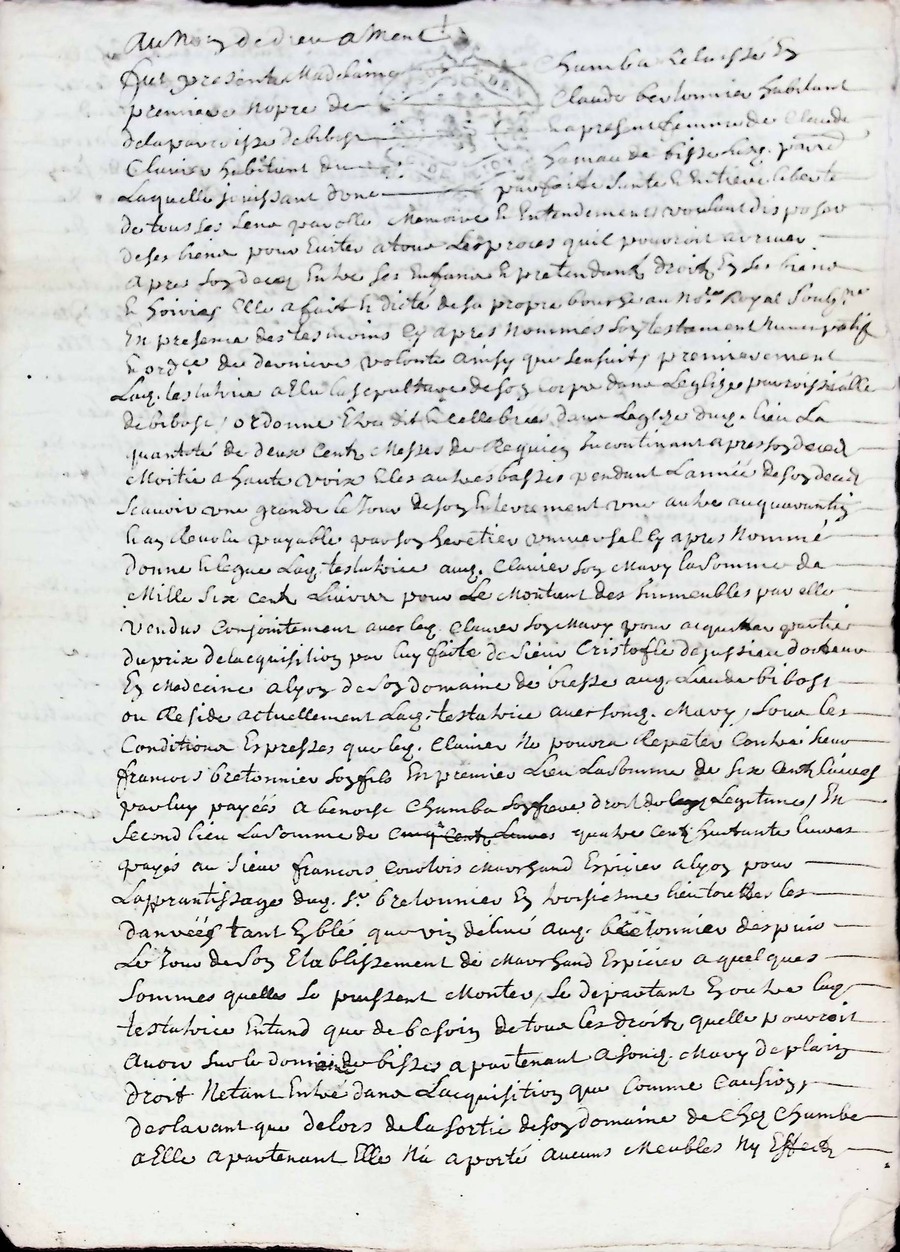 Au Nom de dieu Amen
fut presente Madelaine Chamba Relaissée En
premiere Nopce de Claude bretonnier habitant
dela parroisse de bibost a present femme de Claude
Clavier habitant du hameau de bisse Susd. parrd
Laquelle jouissant donc parfaite Santé & Entiere liberté
de tous ses Sens parolle Memoire & Entendement, voulant disposer
de ses biens pour Eviter a tous Les proces quil pouroit arriver
apres Son deces Entre ses Enfans & pretendants droits En ses biens
& hoiries Elle a fait & dicté de sa propre bouche au Nore Royal Soubne
En presence des tesmoins Cy apres Nommés Son testament Nuncupatif
& ordce de derniere volonté Ainsy que Sensuit, premierement
Laq. testatrice a Elu la Sepulture de Son Corps dans L'eglise parroissialle
de bibost, ordonne Etre dit & Cellebré dans Laglize dud. lieu La
quantité de deux Cents Messes de Requien Incontinant apres son deced
Moitié a haute voix & les autres basses pendant L'année de Son deced
Scavoir une grande le Jour de Son Enterrement une autre au quarantin
& an Revolu payable par Son heretier universal Cy apres Nommé
donne & legue Laq. testatrice auq. Clavier Son Mary la Somme de
Mille Six Cents Livres pour Le Montant des Immeubles par elle
vendus Conjointement avec leq. Clavier Son Mary pour acquitter partie
du prix de lacquisition par luy faite de Sieur Cristofle dejussieu docteur
En Medecine a lyon de Son domaine de biesse auq. Lieu de bibost
ou Reside actuellement Laq. testatrice avec Sonq. Mary, Sous les
Conditions Expresses que leq. Clavier Ne pourra Repeter Contre Sieur
francois bretonnier Son fils En premier Lieu La Somme de Six Cents livres
par luy payées a benoist Chamba Son frere droit de Legitime, En
Second lieu La Somme de Cinq Cents Livres quatre Cents huitante livres
payés au Sieur francois Courtois Marchand Epicier a lyon pour
L'apprantissage duq. Sr. bretonnier En troisiesme lieu toutes les
danrées tant En blé que vin délivré auq. bretonnier despuis
Le Jour de Son Etablissement de Marchand Epicier a quelques
Sommes quelles Se puissent Monter, Se departant En outre laq.
testatrice Entand que de besoin de tous les droits quelle pouvoit
avoir Sur le domaine de bisse apartenant a Sonq. Mary de plain
droit Netant Entré dans L'acquisition que Comme Caution,
declarant que de lors de la Sortie de Son domaine de Chez Chamba
a Elle apartenant Elle Na aporté aucuns Meubles Ny Effects